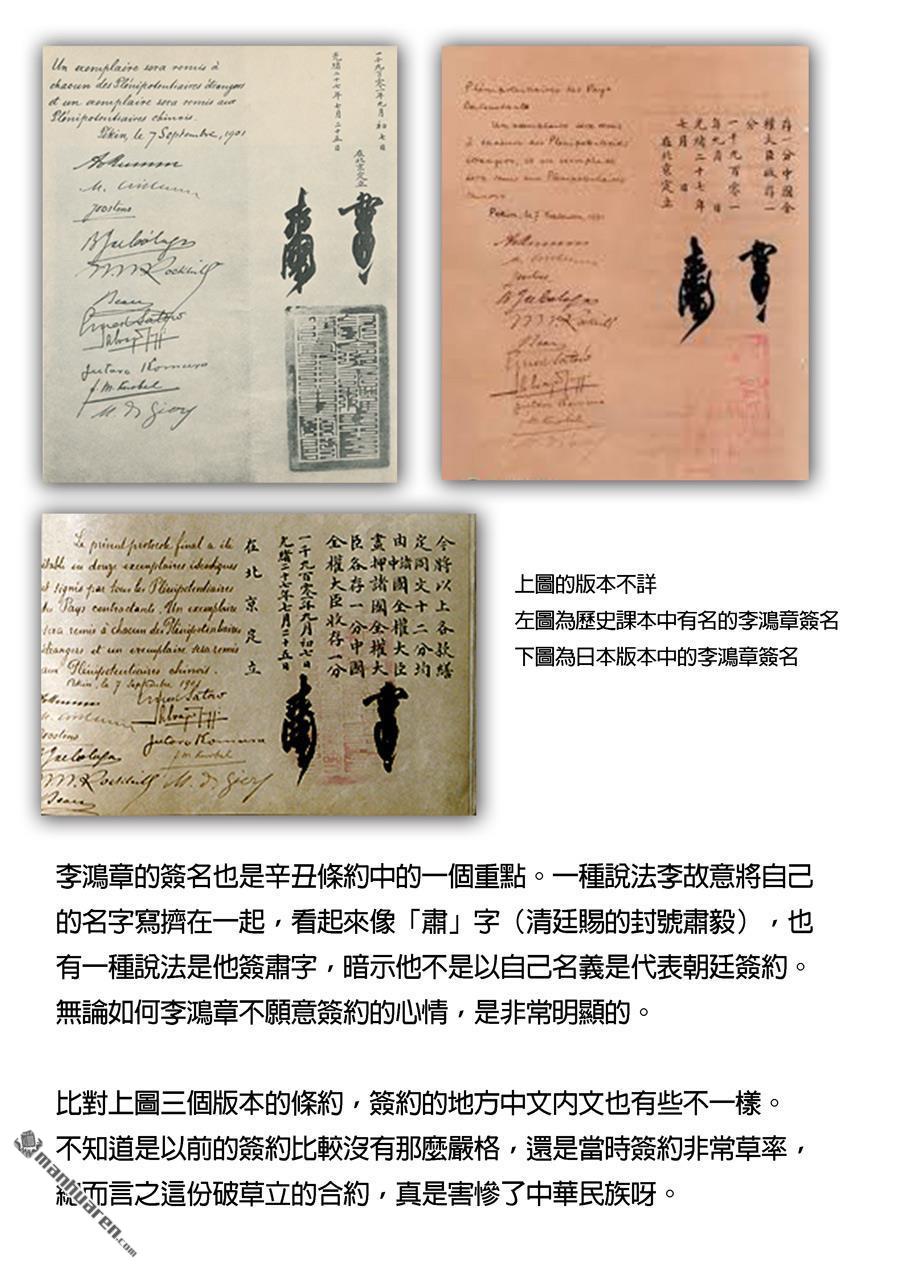 Un exemplaire sera remis à
chacun des Plénipotentiaires étrangers
et un exemplaire sera remis aux
Plénipotentiaires chinois.
Pékin, le 7 Septembre, 1901
Joostens
W. W. Rockhill
Beau
Ernest Satow
Salvago Raggi
Jutaro Komura
F. M. Knobel
M. de Giers
一千九百零一年九月初七日
光緒二十七年七月二十五日
在北京定立
Plénipotentiaires des Pays
Un exemplaire sera remis
存一分中國全
權大臣收存一
分
一千九百零一
年九月 日
光緒二十七年
七月 日
在北京定立
Le présent protocole final a été
établi en douze exemplaires identiques
et signés par tous les Plénipotentiaires
des Pays contractants. Un exemplaire
sera remis à chacun des Plénipotentiaires
étrangers et un exemplaire sera remis
aux Plénipotentiaires chinois.
Pékin, le 7 Septembre 1901
Ernest Satow
Salvago Raggi
Jutaro Komura
F. M. Knobel
M. de Giers
Joostens
W. W. Rockhill
Beau
今將以上各款繕
定同文十二分均
由諸國全權大臣
畫押諸國全權大
臣各存一分中國
全權大臣收存一分
一千九百零一年九月初七日
光緒二十七年七月二十五日
在北京定立
上圖的版本不詳
左圖為歷史課本中有名的李鴻章簽名
下圖為日本版本中的李鴻章簽名
李鴻章的簽名也是辛丑條約中的一個重點。一種說法李故意將自己
的名字寫擠在一起，看起來像「肅」字（清廷賜的封號肅毅），也
有一種說法是他簽肅字，暗示他不是以自己名義是代表朝廷簽約。
無論如何李鴻章不願意簽約的心情，是非常明顯的。
比對上圖三個版本的條約，簽約的地方中文內文也有些不一樣。
不知道是以前的簽約比較沒有那麼嚴格，還是當時簽約非常草率，
總而言之這份破草立的合約，真是害慘了中華民族呀。
manhuaren.com